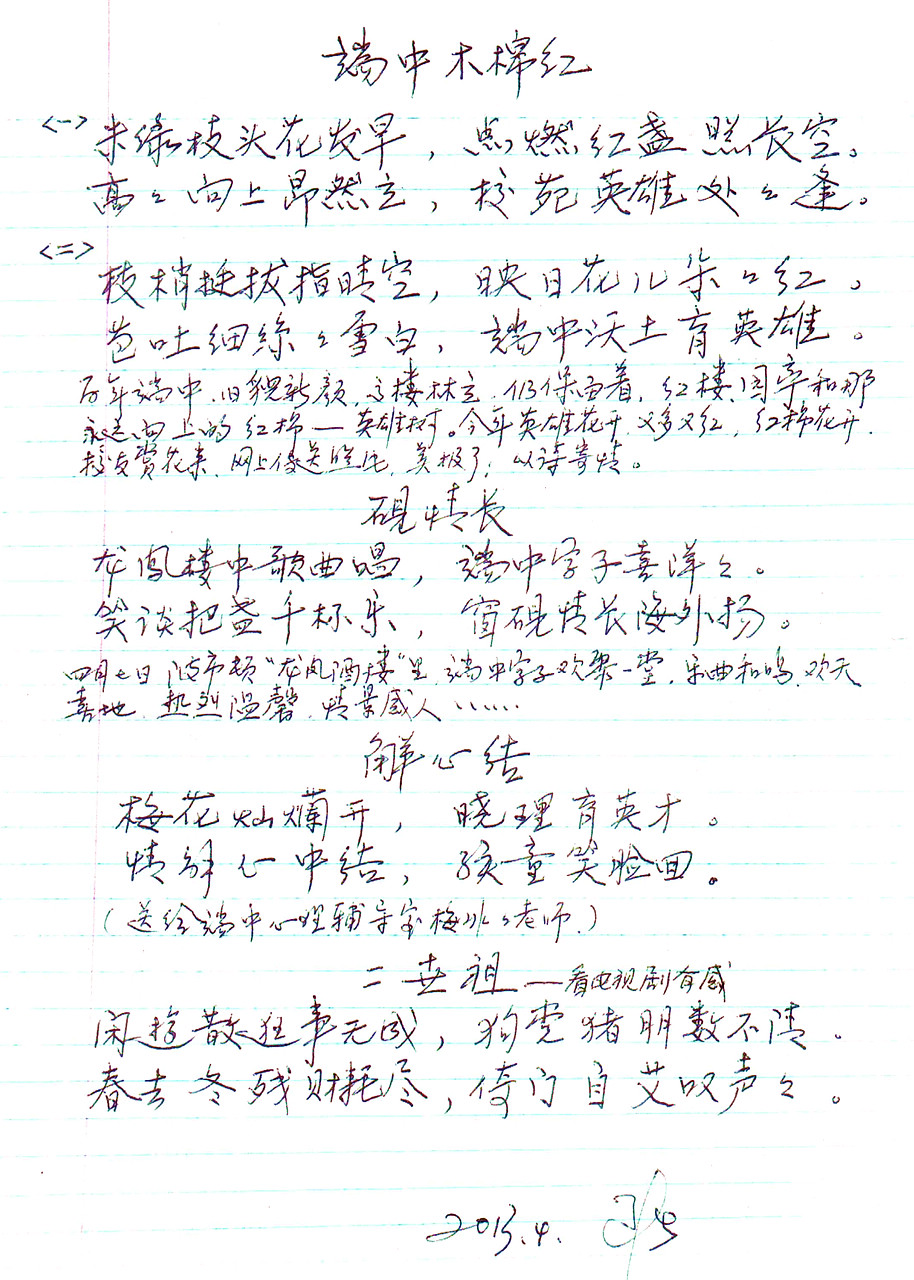 端中木棉红
<一>
未绿枝头花发早，点燃红盏照长空。
高々向上昂然立，校苑英雄处々逢。
<二>
枝梢挺拔指晴空，映日花儿朵々红。
苞吐细絲々雪白，端中沃土育英雄。
百年端中，旧貌新颜，高楼林立，仍保留着，红楼、图亭和那
永远向上的红棉—英雄树。今年英雄花开，又多又红，红棉花开，
校友赏花来，网上传送照片，美极了，以诗寄情。
砚情长
龙凤楼中歌曲唱，端中学子喜洋々。
笑谈把盏千杯乐，窗砚情长海外扬。
四月七日，波市顿“龙凤酒楼”里，端中学子欢聚一堂，乐曲和鸣，欢天
喜地，热烈温馨，情景感人……
解心结
梅花灿爛开，晓理育英才。
情解心中结，孩童笑脸回。
（送给端中心理辅导室梅冰々老师.）
二世祖—看电视剧有感
闲游散狂事无成，狗党猪朋数不清。
春去冬残财耗尽，倚门自艾叹声々。
2013.4.